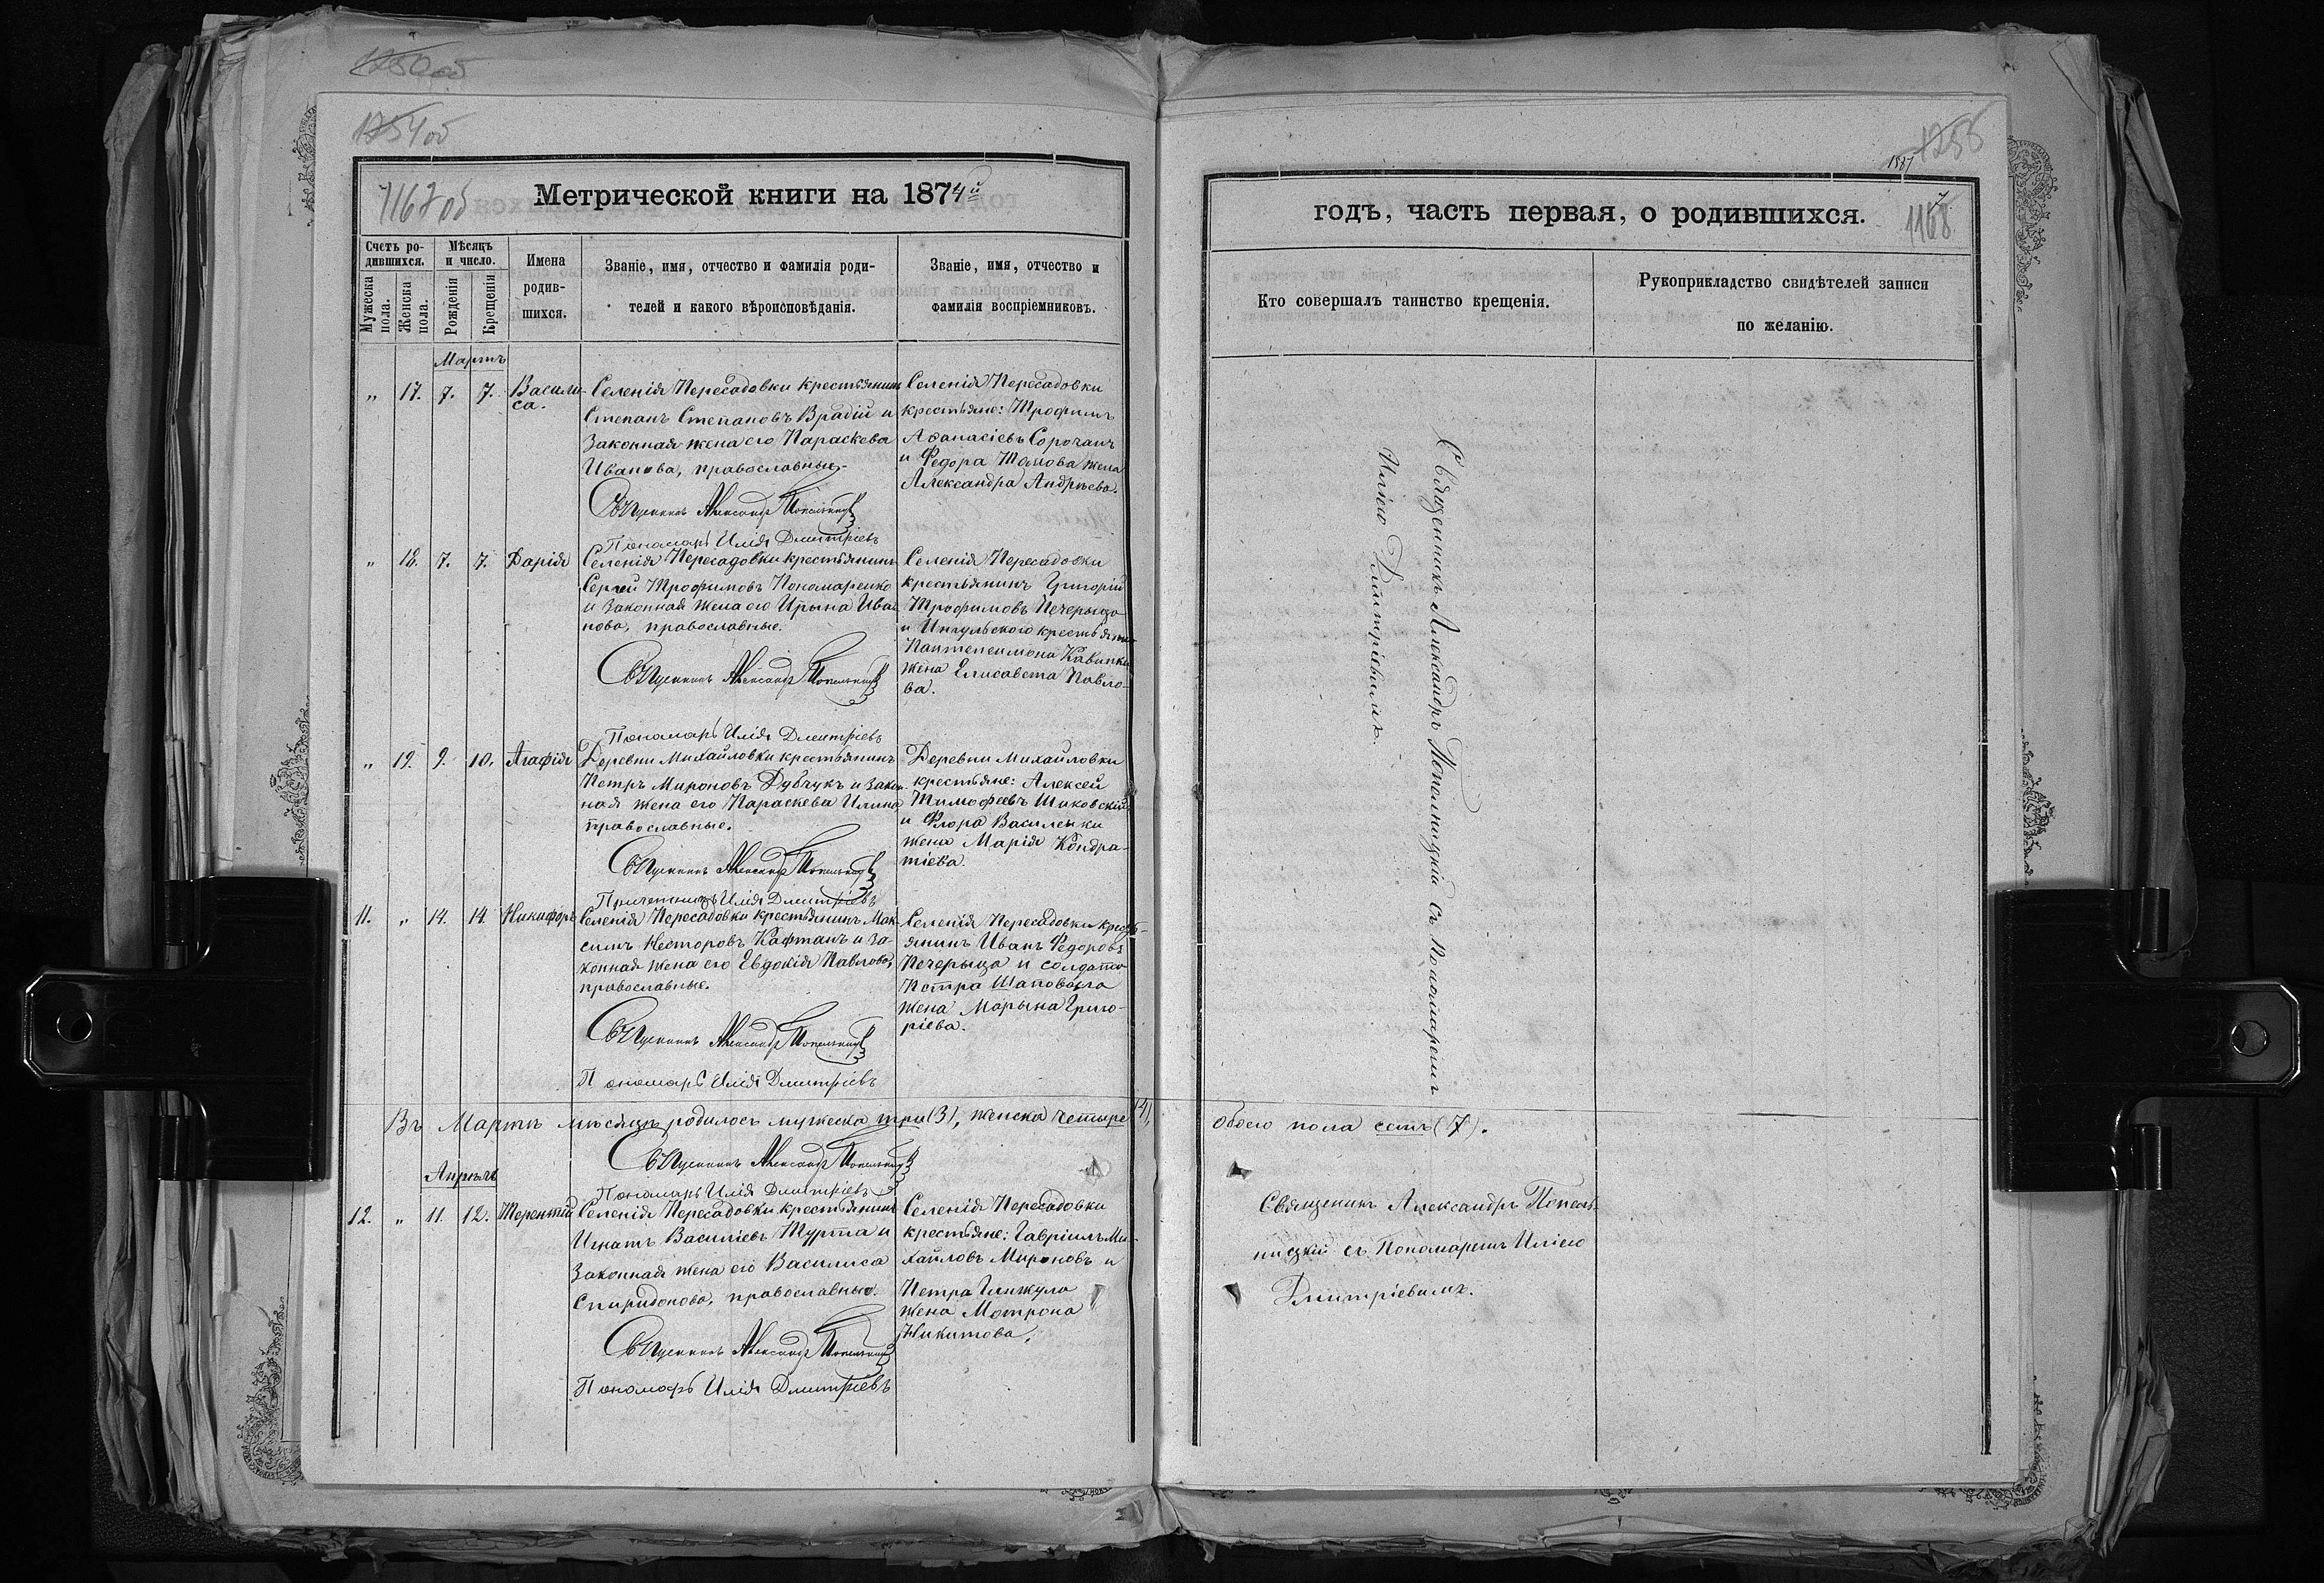 1250об
1254об
1167об
Метрической книги на 1874й
Счетъ ро-
дившихся.
Мужеска
пола.
Женска
пола.
Мѣсяцъ
и число.
Рожденія
Крещенія
Имена
родив-
шихся.
Званіе, имя, отчество и фамилія роди-
телей и какого вѣроисповѣданія.
Званіе, имя, отчество и
фамилія воспріемниковъ.
Мартъ
„ 17. 7. 7. Васили-
са.
Селенія Пересадовки крестьянинъ
Степанъ Степановъ Врадій и
законная жена его Параскева
Иванова, православные.
Священникъ Александръ Попельницкій
Пономарь Илія Дмитріевъ
Селенія Пересадовки
крестьяне: Трофимъ
Афанасіевъ Сорочанъ
и Федора Томова жена
Александра Андрѣева.
„ 18. 7. 7. Дарія
Селенія Пересадовки крестьянинъ
Сергій Трофимовъ Пономаренко
и законная жена его Ирына Ива-
нова, православные.
Священникъ Александръ Попельницкій
Пономарь Илія Дмитріевъ
Селенія Пересадовки
крестьянинъ Григорій
Трофимовъ Печерыца
и Ингульского крестьянина
Пантелеимона
жена Елисавета Павло-
ва.
„ 19. 9. 10. Агафія
Деревни Михайловки крестьянинъ
Петръ Мироновъ Дубчукъ и закон-
ная жена его Параскева Илина
православные.
Священникъ Александръ Попельницкій
Причетникъ Илія Дмитріевъ
Деревни Михайловки
крестьяне: Алексей
Тимофеевъ Шаковскій
и Флора Василенки
жена Марія Кондра-
тіева.
11. „ 14. 14. Никифоръ
Селенія Пересадовки крестьянинъ Мак-
симъ Несторовъ Кафтанъ и за-
конная жена его Евдокія Павлова,
православные.
Священникъ Александръ Попельницкій
Пономарь Илія Дмитріевъ
Селенія Пересадовки кресть-
янинъ Иванъ Федоровъ
Печерыца и солдата
Петра Шаповала
жена Марына Григо-
ріева.
Въ Мартѣ мѣсяцѣ родилось мужеска три (3), женска четыре (4),
Священникъ Александръ Попельницкій
Пономарь Илія Дмитріевъ
Апрѣль
12. „ 11. 12. Терентій
Селенія Пересадовки крестьянинъ
Игнатъ Василіевъ Турта и
законная жена его Василиса
Спиридонова, православные.
Священникъ Александръ Попельницкій
Пономарь Илія Дмитріевъ
Селенія Пересадовки
крестьяне: Гавріилъ Ми-
хайловъ Мироновъ и
Петра
жена Мотрона
Никитова.
1255
1168
годъ, часть первая, о родившихся.
Кто совершалъ таинство крещенія.
Рукоприкладство свидѣтелей записи
по желанію.
Священникъ Александръ Попельницкій съ Пономаремъ
Иліею Дмитріевымъ.
обоего пола семь (7).
Священникъ Александръ Попель-
ницкій съ Пономаремъ Иліею
Дмитріевымъ.